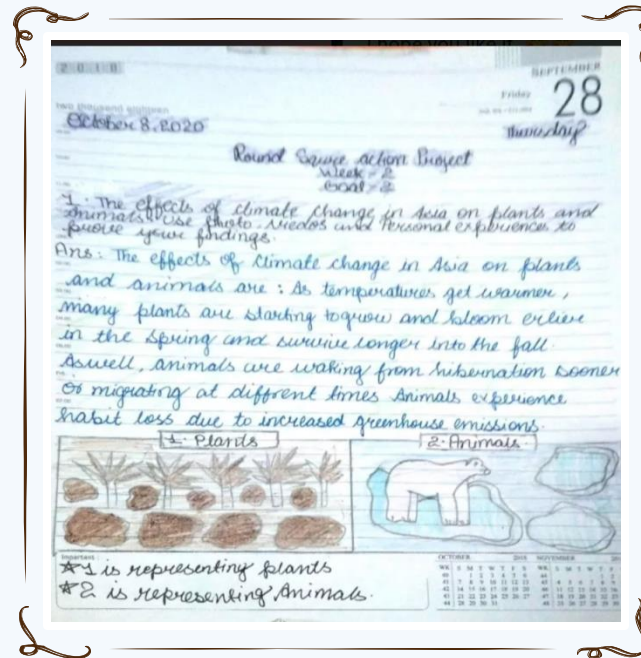 2018
SEPTEMBER
Friday
28
two thousand eighteen
October 8.2020
Thursday
Round Squire action Project
Week - 2
Goal - 2
1. The effects of climate change in Asia on plants and
animals. Use Photo. Viedos and Personal experiences to
prove your findings.
Ans: The effects of climate change in Asia on plants
and animals are : As temperatures get warmer,
many plants are starting to grow and bloom erlier
in the spring and survive longer into the fall.
Aswell, animals are waking from hibernation sooner
Or migrating at different times Animals experience
habit loss due to increased greenhouse emissions.
1. Plants
2. Animals.
Important :
OCTOBER 2018 NOVEMBER
WK S M T W T F S WK S M T W T F S
1 is representing plants
2 is representing Animals.